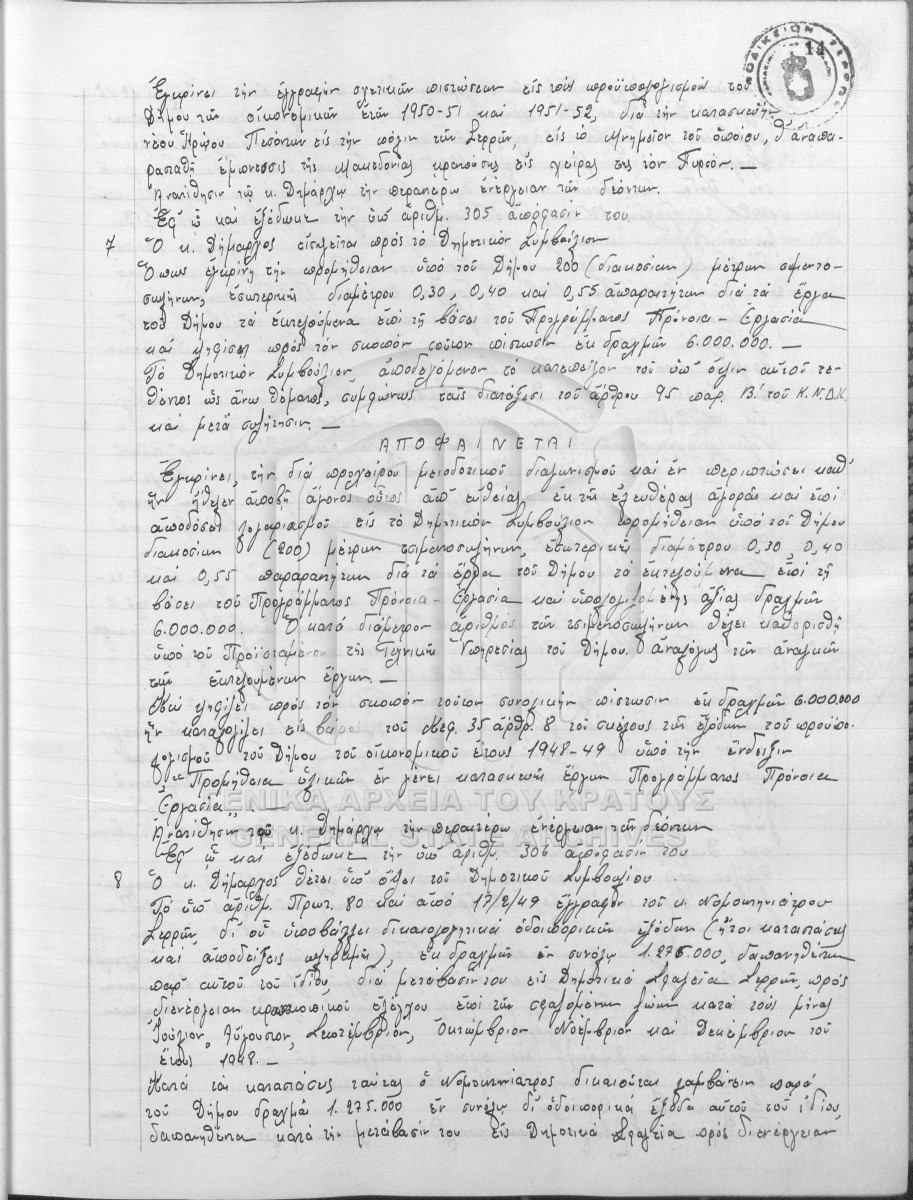 14
Ἐγκρίνει τήν ἐγγραφήν σχετικῶν πιστώσεων εἰς τούς προϋπολογισμούς του
Δήμου τῶν οἰκονομικῶν ἐτῶν 1950-51 καί 1951-52, διά τήν κατασκευήν
νέου Ἡρώου Πεσόντων εἰς τήν πόλιν τῶν Σερρῶν, εἰς τό Μνημεῖον τοῦ ὁποίου, θ' ἀναπα-
ρασταθῆ ἔμπνευσις τῆς Μακεδονίας κρατούσης εἰς χεῖρας της τόν Πυρσόν. —
Ἀνατίθησιν τῷ κ. Δημάρχῳ τήν περαιτέρω ἐνέργειαν τῶν δεόντων.
Ἐφ' ᾧ καί ἐξέδωκε τήν ὑπ' ἀριθμ. 305 ἀπόφασίν του
7 Ὁ κ. Δήμαρχος εἰσηγεῖται πρός τό Δημοτικόν Συμβούλιον
Ὅπως ἐγκρίνῃ τήν προμήθειαν ὑπό τοῦ Δήμου 200 (διακοσίων) μέτρων τσιμεντο-
σωλήνων, ἐσωτερικῆς διαμέτρου 0,30, 0,40 καί 0,55 ἀπαραιτήτων διά τά ἔργα
τοῦ Δήμου τά ἐκτελούμενα ἐπί τῇ βάσει τοῦ Προγράμματος Πρόνοια - Ἐργασία
καί ψηφίσει πρός τόν σκοπόν τοῦτον πίστωσιν ἐκ δραχμῶν 6.000.000. —
Τό Δημοτικόν Συμβούλιον ἀποδεχόμενον τό κατεπεῖγον τοῦ ὑπ' ὄψιν αὐτοῦ τε-
θέντος ὡς ἄνω θέματος, συμφώνως ταῖς διατάξεσι τοῦ ἄρθρου 95 παρ. Β.' τοῦ Κ.Ν.Δ.Κ.
καί μετά συζήτησιν. —
ΑΠΟΦΑΙΝΕΤΑΙ
Ἐγκρίνει, τήν διά προχείρου μειοδοτικοῦ διαγωνισμοῦ καί ἐν περιπτώσει καθ'
ἥν ἤθελεν ἀποβῆ ἄγονος οὗτος ἀπ' εὐθείας ἐκ τῆς ἐλευθέρας ἀγορᾶς καί ἐπί
ἀποδόσει λογαριασμοῦ εἰς τό Δημοτικόν Συμβούλιον προμήθειαν ὑπό τοῦ Δήμου
διακοσίων (200) μέτρων τσιμεντοσωλήνων, ἐσωτερικῆς διαμέτρου 0,30, 0,40
καί 0,55 παραραιτήτων διά τά ἔργα τοῦ Δήμου τά ἐκτελούμενα ἐπί τῇ
βάσει τοῦ Προγράμματος Πρόνοια - Ἐργασία καί ὑπολογισμένης ἀξίας δραχμῶν
6.000.000. Ὁ κατά διάμετρον ἀριθμός τῶν τσιμεντοσωλήνων θέλει καθορισθῆ
ὑπό τοῦ Προϊσταμένου τῆς Τεχνικῆς Ὑπηρεσίας τοῦ Δήμου. ἀναλόγως τῶν ἀναγκῶν
τῶν ἐκτελουμένων ἔργων. —
Καί ψηφίζει πρός τόν σκοπόν τοῦτον συνολικήν πίστωσιν ἐκ δραχμῶν 6.000.000
ἥν καταλογίζει εἰς βάρος τοῦ Κεφ. 35 ἄρθρ. 8 τοῦ σκέλους τῶν ἐξόδων τοῦ προϋπο-
λογισμοῦ τοῦ Δήμου τοῦ οἰκονομικοῦ ἔτους 1948-49 ὑπό τήν ἔνδειξιν
" Προμήθεια ὑλικῶν ἐν γένει κατασκευῆς ἔργων Προγράμματος Πρόνοια
Ἐργασία
Ἀνατίθησιν τῷ κ. Δημάρχῳ τήν περαιτέρω ἐνέργειαν τῶν δεόντων
Ἐφ' ᾧ καί ἐξέδωκε τήν ὑπ' ἀριθμ. 306 ἀπόφασίν του
8 Ὁ κ. Δήμαρχος θέτει ὑπ' ὄψει τοῦ Δημοτικοῦ Συμβουλίου
Τό ὑπ' ἀριθμ. Πρωτ. 80 καί ἀπό 17/2/49 ἔγγραφον τοῦ κ. Νομοκτηνιάτρου
Σερρῶν, δι' οὗ ὑποβάλλει δικαιολογητικά ὁδοιπορικῶν ἐξόδων (ἤτοι καταστάσεις
καί ἀποδείξεις πληρωμῆς), ἐκ δραχμῶν ἐν συνόλῳ 1.275.000, δαπανηθέντων
παρ' αὐτοῦ τοῦ ἰδίου, διά μετάβασίν του εἰς Δημοτικά Σφαγεῖα Σερρῶν, πρός
διενέργειαν κρεοσκοπικοῦ ἐλέγχου ἐπί τῶν σφαζομένων ζώων κατά τούς μῆνας
Ἰούλιον, Αὔγουστον, Σεπτέμβριον, Ὀκτώμβριον Νοέμβριον καί Δεκέμβριον τοῦ
ἔτους 1948. —
Κατά τάς καταστάσεις ταύτας ὁ Νομοκτηνίατρος δικαιοῦται λαμβάνειν παρά
τοῦ Δήμου δραχμάς 1.275.000 ἐν συνόλῳ δι' ὁδοιπορικά ἔξοδα αὐτοῦ τοῦ ἰδίου,
δαπανηθέντα κατά τήν μετάβασίν του εἰς Δημοτικά Σφαγεῖα πρός διενέργειαν
ΓΕΝΙΚΑ ΑΡΧΕΙΑ ΤΟΥ ΚΡΑΤΟΥΣ
GENERAL STATE ARCHIVES